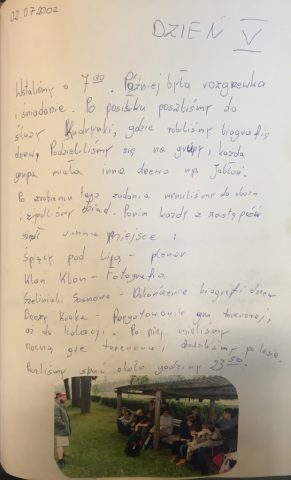 02.07.2002
DZIEŃ V
Wstaliśmy o 7:00. Później była rozgrzewka
i śniadanie. Po posiłku poszliśmy do
śluzy Kudrynki, gdzie robiliśmy biografię
drzew. Podzieliliśmy się na grupy i każda
grupa miała inne drzewo na
Po zrobieniu tego zadania wróciliśmy do obozu
i zjedliśmy obiad. Potem każdy z zastępów
w inne miejsce:
Śpiący pod Lipą - plener
Klan Klon - Fotografia
Sosnowe - Dokończenie biografii drzew
Przygotowanie gry terenowej,
aż do kolacji. Po niej mieliśmy
nocną grę terenową, chodziliśmy po lesie.
Poszliśmy spać około godziny 23:50.